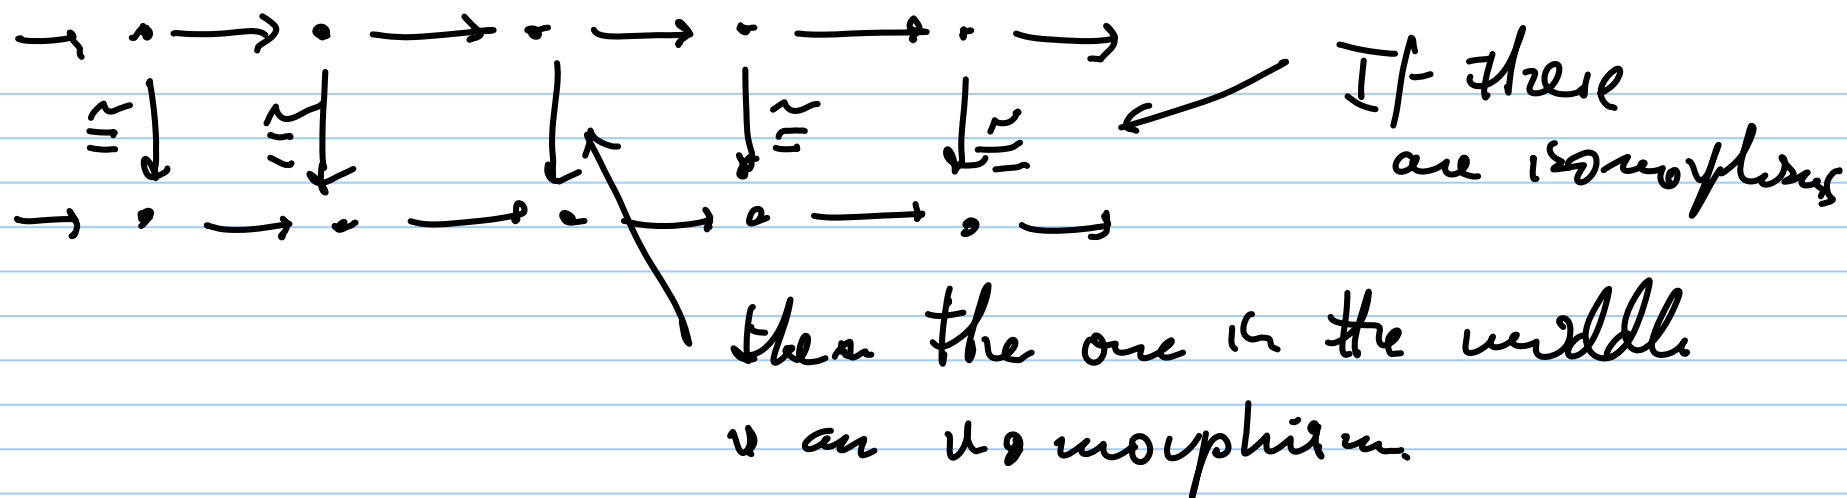 ≅ ≅ ≅ ≅
If these
are isomorphisms
then the one in the middle
is an isomorphism.